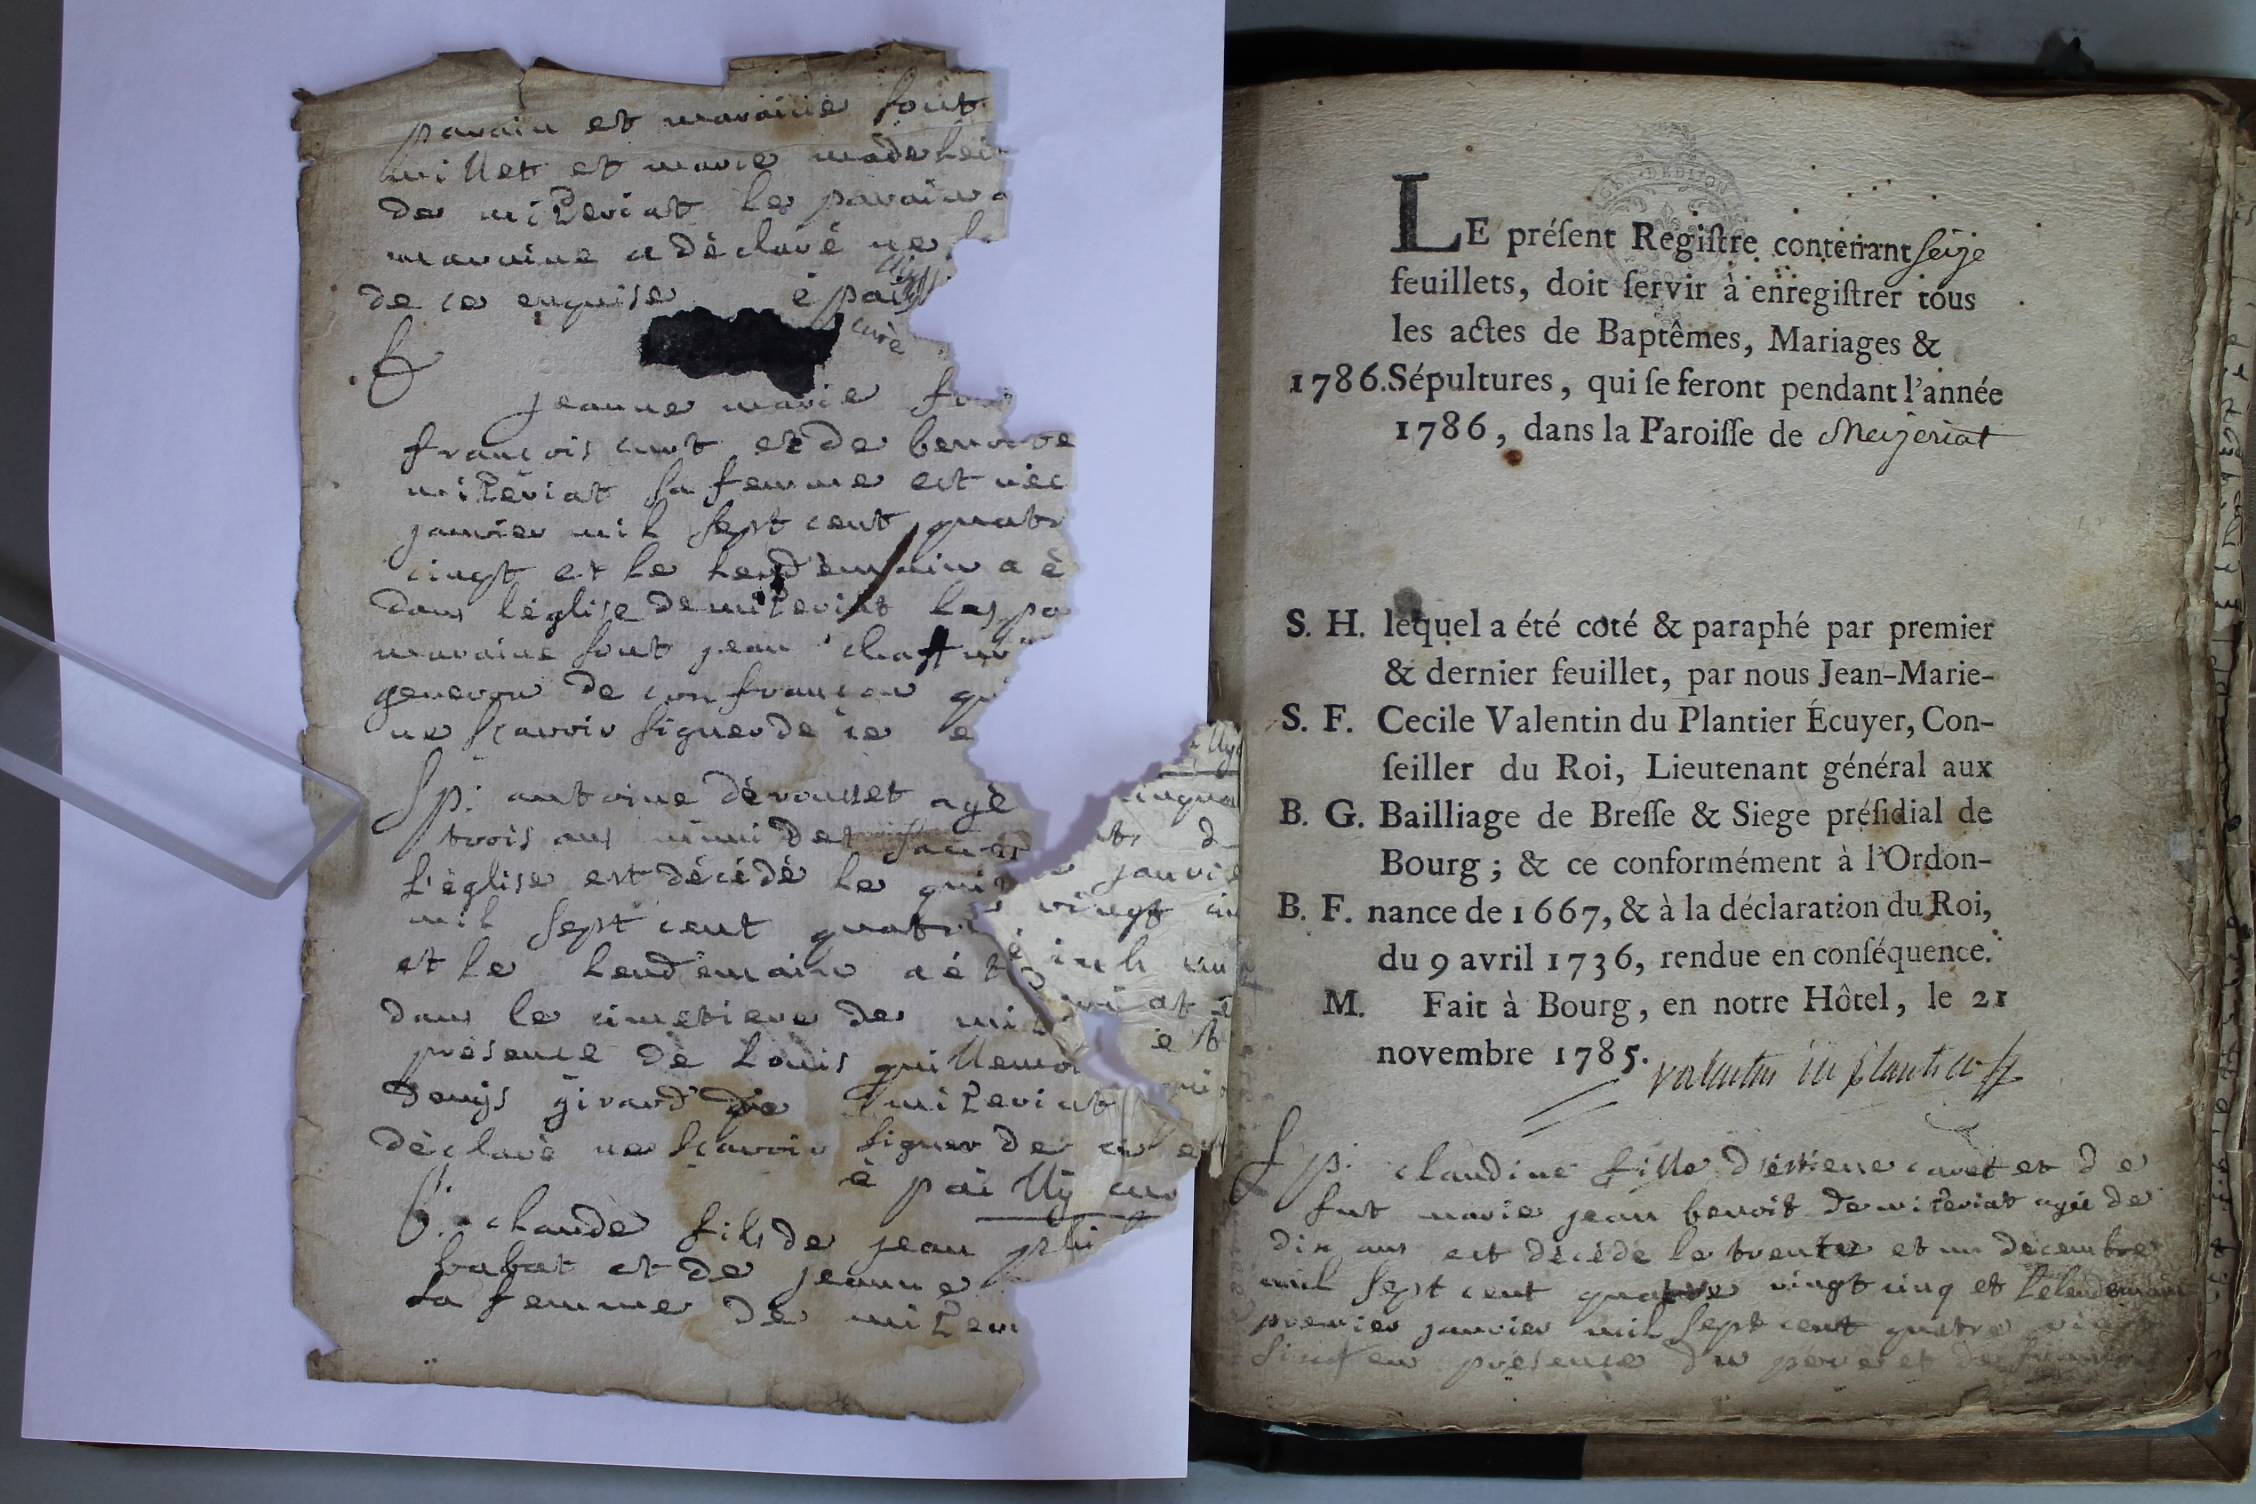 parain et maraine sont
millet et marie madelei
de miZeriat le parain a
maraine a déclaré ne
de ce enquise épailly
curé
B
jeanne marie
françois curt et de benoite
miZériat sa femme est née
janvier mil sept cent quatr
cinqt et le lendémain a é
dans léglise de miZeriat les pa
maraine sont jean
generon de confrançon qu
ne sçavoir signer de ce e
Spr antoine dérouset agé
trois ans muni des sacr
l'église est décédé le quin
e janvie
mil sept cent quatre vingt cin
et le lendémain a été inh um
dans le cimetiere de miZeriat e
présence de Louis guillemo et
denys girard de miZeriat qui
déclaré ne sçavoir signer de ce e
épailly cur
B. claude fils de jean phi
babat et de jeanne
sa femme de miZeri
LE préſent Regiſtre contenant seize
feuillets, doit ſervir à enregiſtrer tous
les actes de Baptêmes, Mariages &
1786. Sépultures, qui ſe feront pendant l'année
1786, dans la Paroiſſe de Meizeriat
S. H. lequel a été coté & paraphé par premier
& dernier feuillet, par nous Jean-Marie-
S. F. Cecile Valentin du Plantier Écuyer, Con-
ſeiller du Roi, Lieutenant général aux
B. G. Bailliage de Breſſe & Siege préſidial de
Bourg ; & ce conformément à l'Ordon-
B. F. nance de 1667, & à la déclaration du Roi,
du 9 avril 1736, rendue en conſéquence.
M. Fait à Bourg, en notre Hôtel, le 21
novembre 1785. valentin du plantier
Spr claudine fille d'éstiene caret et de
fut marie jean benoit de miZeriat agée de
dix ans est décédé le trente et un decembre
mil sept cent quatre vingt cinq et le lendemain
premier janvier mil sept cent quatre vingt
six en présence du père et de